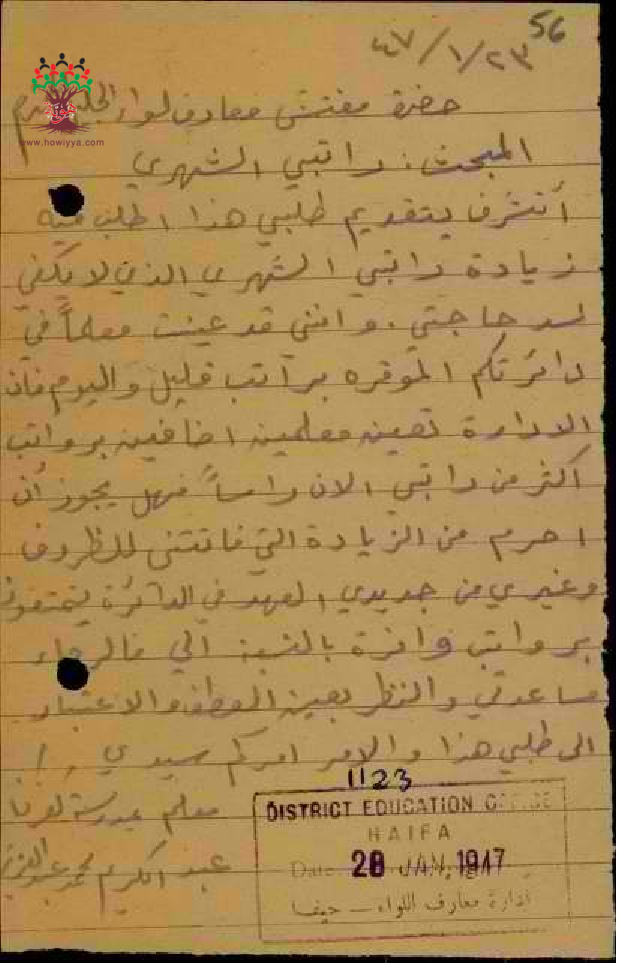 56
٤٧/١/٢٣
حضرة مفتش معارف لواء الجليل
www.howiyya.com
المبحث: راتبي الشهري
أتشرف بتقديم طلبي هذا اطلب فيه
زيادة راتبي الشهري الذي لا يكفي
لسد حاجتي. وانني قد عينت معلماً في
دائرتكم الموقره براتب قليل واليوم فان
الادارة تعين معلمين اضافيين برواتب
أكثر من راتبي الان راساً فهل يجوز أن
احرم من الزيادة التي فاتتني للظروف
وغيري من جديدي العهد في الدائرة يتمتعون
برواتب وافرة بالنسبة الي فالرجاء
مساعدتي والنظر بعين العطف والاعتبار
الى طلبي هذا والامر امركم سيدي ,,!
1123
معلم بمدرسة
عبد الكريم محمد
DISTRICT EDUCATION OFFICE
HAIFA
Date 28 JAN. 1947
ادارة معارف اللواء – حيفا